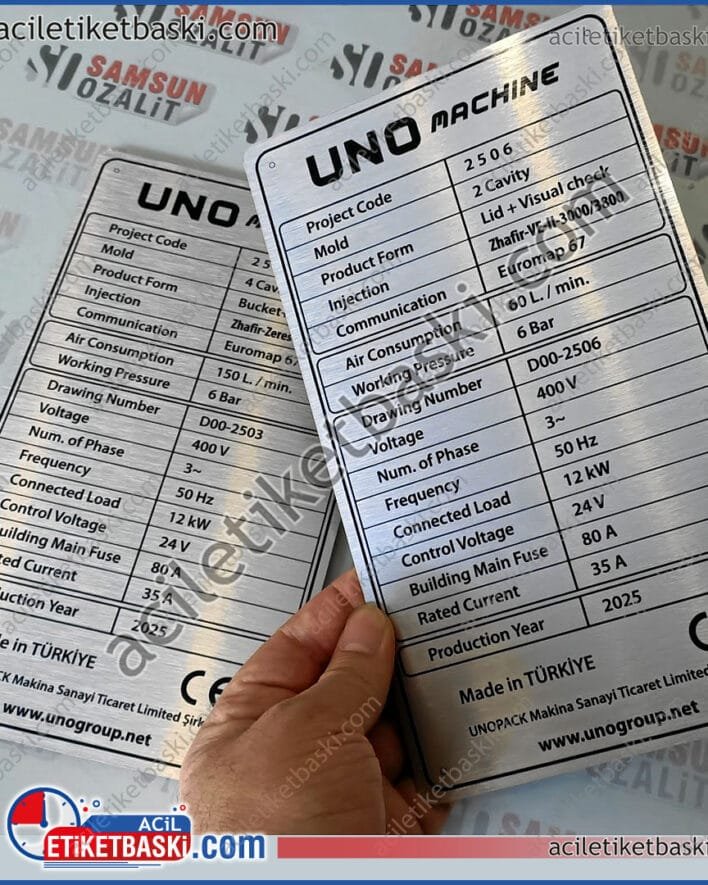 aciletiketbaski.com
aciletiketbaski
SAMSUN
OZALiT
UNO
Project Code
Mold
4 Cav
Product Form
Bucket
Injection
Zhafir-Zeres
Communication
Euromap 67
Air Consumption
150 L. / min.
Working Pressure
6 Bar
Drawing Number
D00-2503
Voltage
400 V
Num. of Phase
3~
Frequency
50 Hz
Connected Load
12 kW
Control Voltage
24 V
uilding Main Fuse
80 A
ted Current
35 A
uction Year
2025
de in TÜRKİYE
CE
CK Makina Sanayi Ticaret Limited Şirk
www.unogroup.net
UNO MACHINE
Project Code 2506
Mold 2 Cavity
Product Form Lid + Visual check
Injection Zhafir-VE-II-3000/3300
Communication Euromap 67
Air Consumption 60 L. / min.
Working Pressure 6 Bar
Drawing Number D00-2506
Voltage 400 V
Num. of Phase 3~
Frequency 50 Hz
Connected Load 12 kW
Control Voltage 24 V
Building Main Fuse 80 A
Rated Current 35 A
Production Year 2025
Made in TÜRKİYE
UNOPACK Makina Sanayi Ticaret Limited
www.unogroup.net
aciletiketbaski.com
ACiL
ETİKETBASKI.com
aciletiketbaski